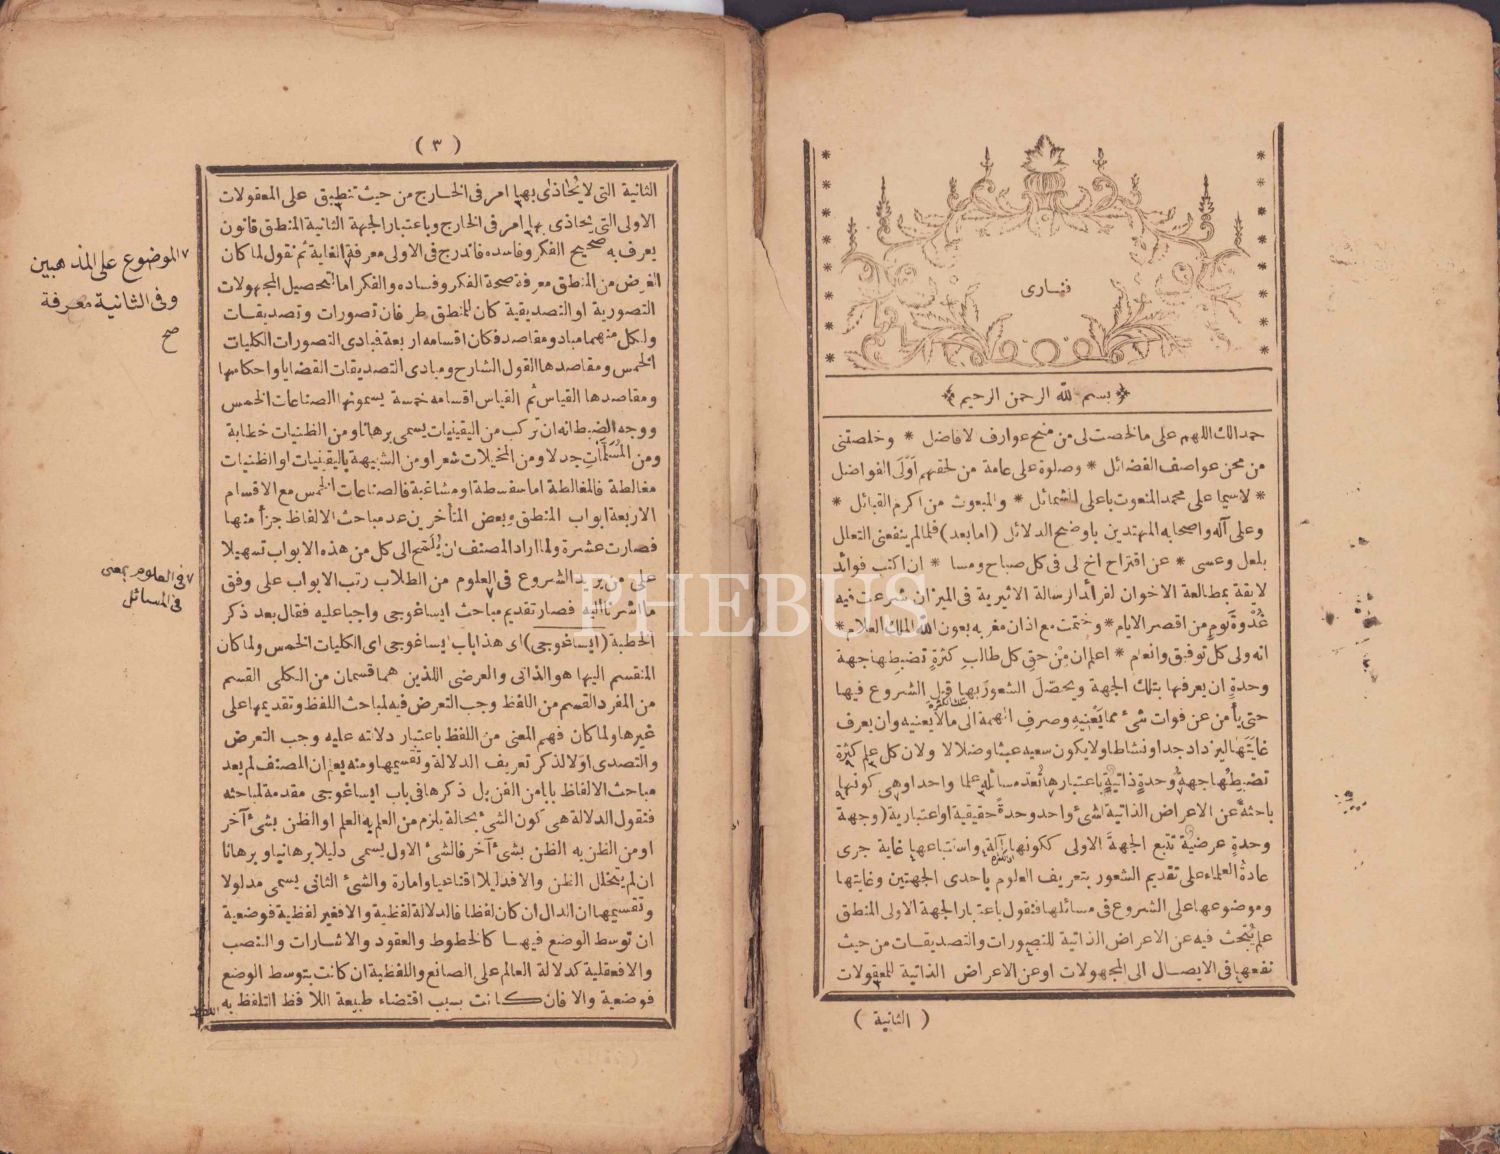 فنارى
بسم الله الرحمن الرحيم
حمدا لك اللهم على ما لخصت لى من منح عوارف لافاضل * وخلصتنى
من محن عواصف الفضائل * وصلوة على عامة من لحقهم اولى الفواضل
* لاسيما على محمد المنعوت باعلى الشمائل * والمبعوث من اكرم القبائل *
وعلى آله واصحابه المهتدين باوضح الدلائل (اما بعد) فلما لم ينفعنى التعلل
بلعل وعسى * عن اقتراح اخ لى فى كل صباح ومسا * ان اكتب فوائد
لايقة بمطالعة الاخوان لفرائد ارسالة الاثيرية فى الميزان شرعت فيه
غُدْوَةَ يَومٍ من اقصر الايام * وختمت مع اذان مغربه بعون الله الملك العلام *
انه ولى كل توفيق وانعام * اعلم ان مِنْ حقِ كل طالبِ كثرةٍ تضبطها جهة
وحدةٍ ان يعرفها بتلك الجهة ويحصّلَ الشعورَ بها قبل الشروع فيها
حتى يأمن عن فوات شئ مما يَعْنِيهِ وصرفِ الهمة الى ما لا يعنيه وان يعرف
غايَتَها ليزداد جدا ونشاطا ولا يكون سعيه عبثا وضلالا ولان كل علم كثرة
تضبطُها جهةُ وحدةٍ ذاتيةٍ باعتبارها تُعَد مسائله علما واحدا وهى كونها
باحثةً عن الاعراض الذاتية لشئ واحد وحدةً حقيقية او اعتبارية (وجهة
وحدةٍ عرضية تتبع الجهةَ الاولى ككونها آلة واستتباعها غاية جرى
عادةُ العلماء على تقديم الشعور بتعريف العلوم باحدى الجهتين وغايتها
وموضوعها على الشروع فى مسائلها فنقول باعتبار الجهة الاولى المنطق
علم يُبْحث فيه عن الاعراض الذاتية للتصورات والتصديقات من حيث
نفعها فى الايصال الى المجهولات او عن الاعراض الذاتية للمعقولات
( الثانية )
( ٣ )
الثانية التى لا يُحاذى بها امر فى الخارج من حيث تنطبق على المعقولات
الاولى التى يحاذى بها امر فى الخارج وباعتبار الجهة الثانية المنطق قانون
يعرف به صحيح الفكر وفاسده فاندرج فى الاولى معرفة الغاية ثم نقول لما كان
الغرض من المنطق معرفة صحة الفكر وفساده والفكر اما لتحصيل المجهولات
التصورية او التصديقية كان للمنطق طرفان تصورات وتصديقات
ولكل منهما مباد ومقاصد فكان اقسامه اربعة فبادى التصورات الكليات
الخمس ومقاصدها القول الشارح ومبادى التصديقات القضايا واحكامها
ومقاصدها القياس ثم القياس اقسامه خمسة يسمونها الصناعات الخمس
ووجه الضبط انه ان تركب من اليقينيات يسمى برهانا ومن الظنيات خطابة
ومن المُسَلَّمَاتِ جدلا ومن المخيلات شعرا ومن الشبيهة باليقينيات او الظنيات
مغالطة فالمغالطة اما سفسطة او مشاغبة فالصناعات الخمس مع الاقسام
الاربعة ابواب المنطق وبعض المتأخرين عد مباحث الالفاظ جزأ منها
فصارت عشرة ولما اراد المصنف ان يُلَمِّح الى كل من هذه الابواب تسهيلا
على من يريد الشروع فى العلوم من الطلاب رتب الابواب على وفق
ما اشرنا اليه فصار تقديم مباحث ايساغوجى واجبا عليه فقال بعد ذكر
الخطبة (ايساغوجى) اى هذا باب ايساغوجى اى الكليات الخمس ولما كان
المنقسم اليها هو الذاتى والعرضى اللذين هما قسمان من الكلى القسم
من المفرد القسم من اللفظ وجب التعرض فيه لمباحث اللفظ وتقديمها على
غيرها ولما كان فهم المعنى من اللفظ باعتبار دلالته عليه وجب التعرض
والتصدى اولا لذكر تعريف الدلالة وتقسيمها ومنه يعلم ان المصنف لم يعد
مباحث الالفاظ بابا من الفن بل ذكرها فى باب ايساغوجى مقدمة لمباحثه
فنقول الدلالة هى كون الشئ بحالة يلزم من العلم به العلم او الظن بشئ آخر
او من الظن به الظن بشئ آخر فالشئ الاول يسمى دليلا برهانيا وبرهانا
ان لم يتخلل الظن والا فدليلا اقناعيا وامارة والشئ الثانى يسمى مدلولا
وتقسيمها ان الدال ان كان لفظا فالدلالة لفظية والا فغير لفظية فوضعية
ان توسط الوضع فيها كالخطوط والعقود والاشارات والنصب
والا فعقلية كدلالة العالم على الصانع واللفظية ان كانت بتوسط الوضع
فوضعية والا فان كانت بسبب اقتضاء طبيعة اللافظ التلفظ به
٧ الموضوع على المذهبين
وفى الثانية معرفة
صح
٧ فى العلوم بمعنى
فى المسائل
PHEBUS